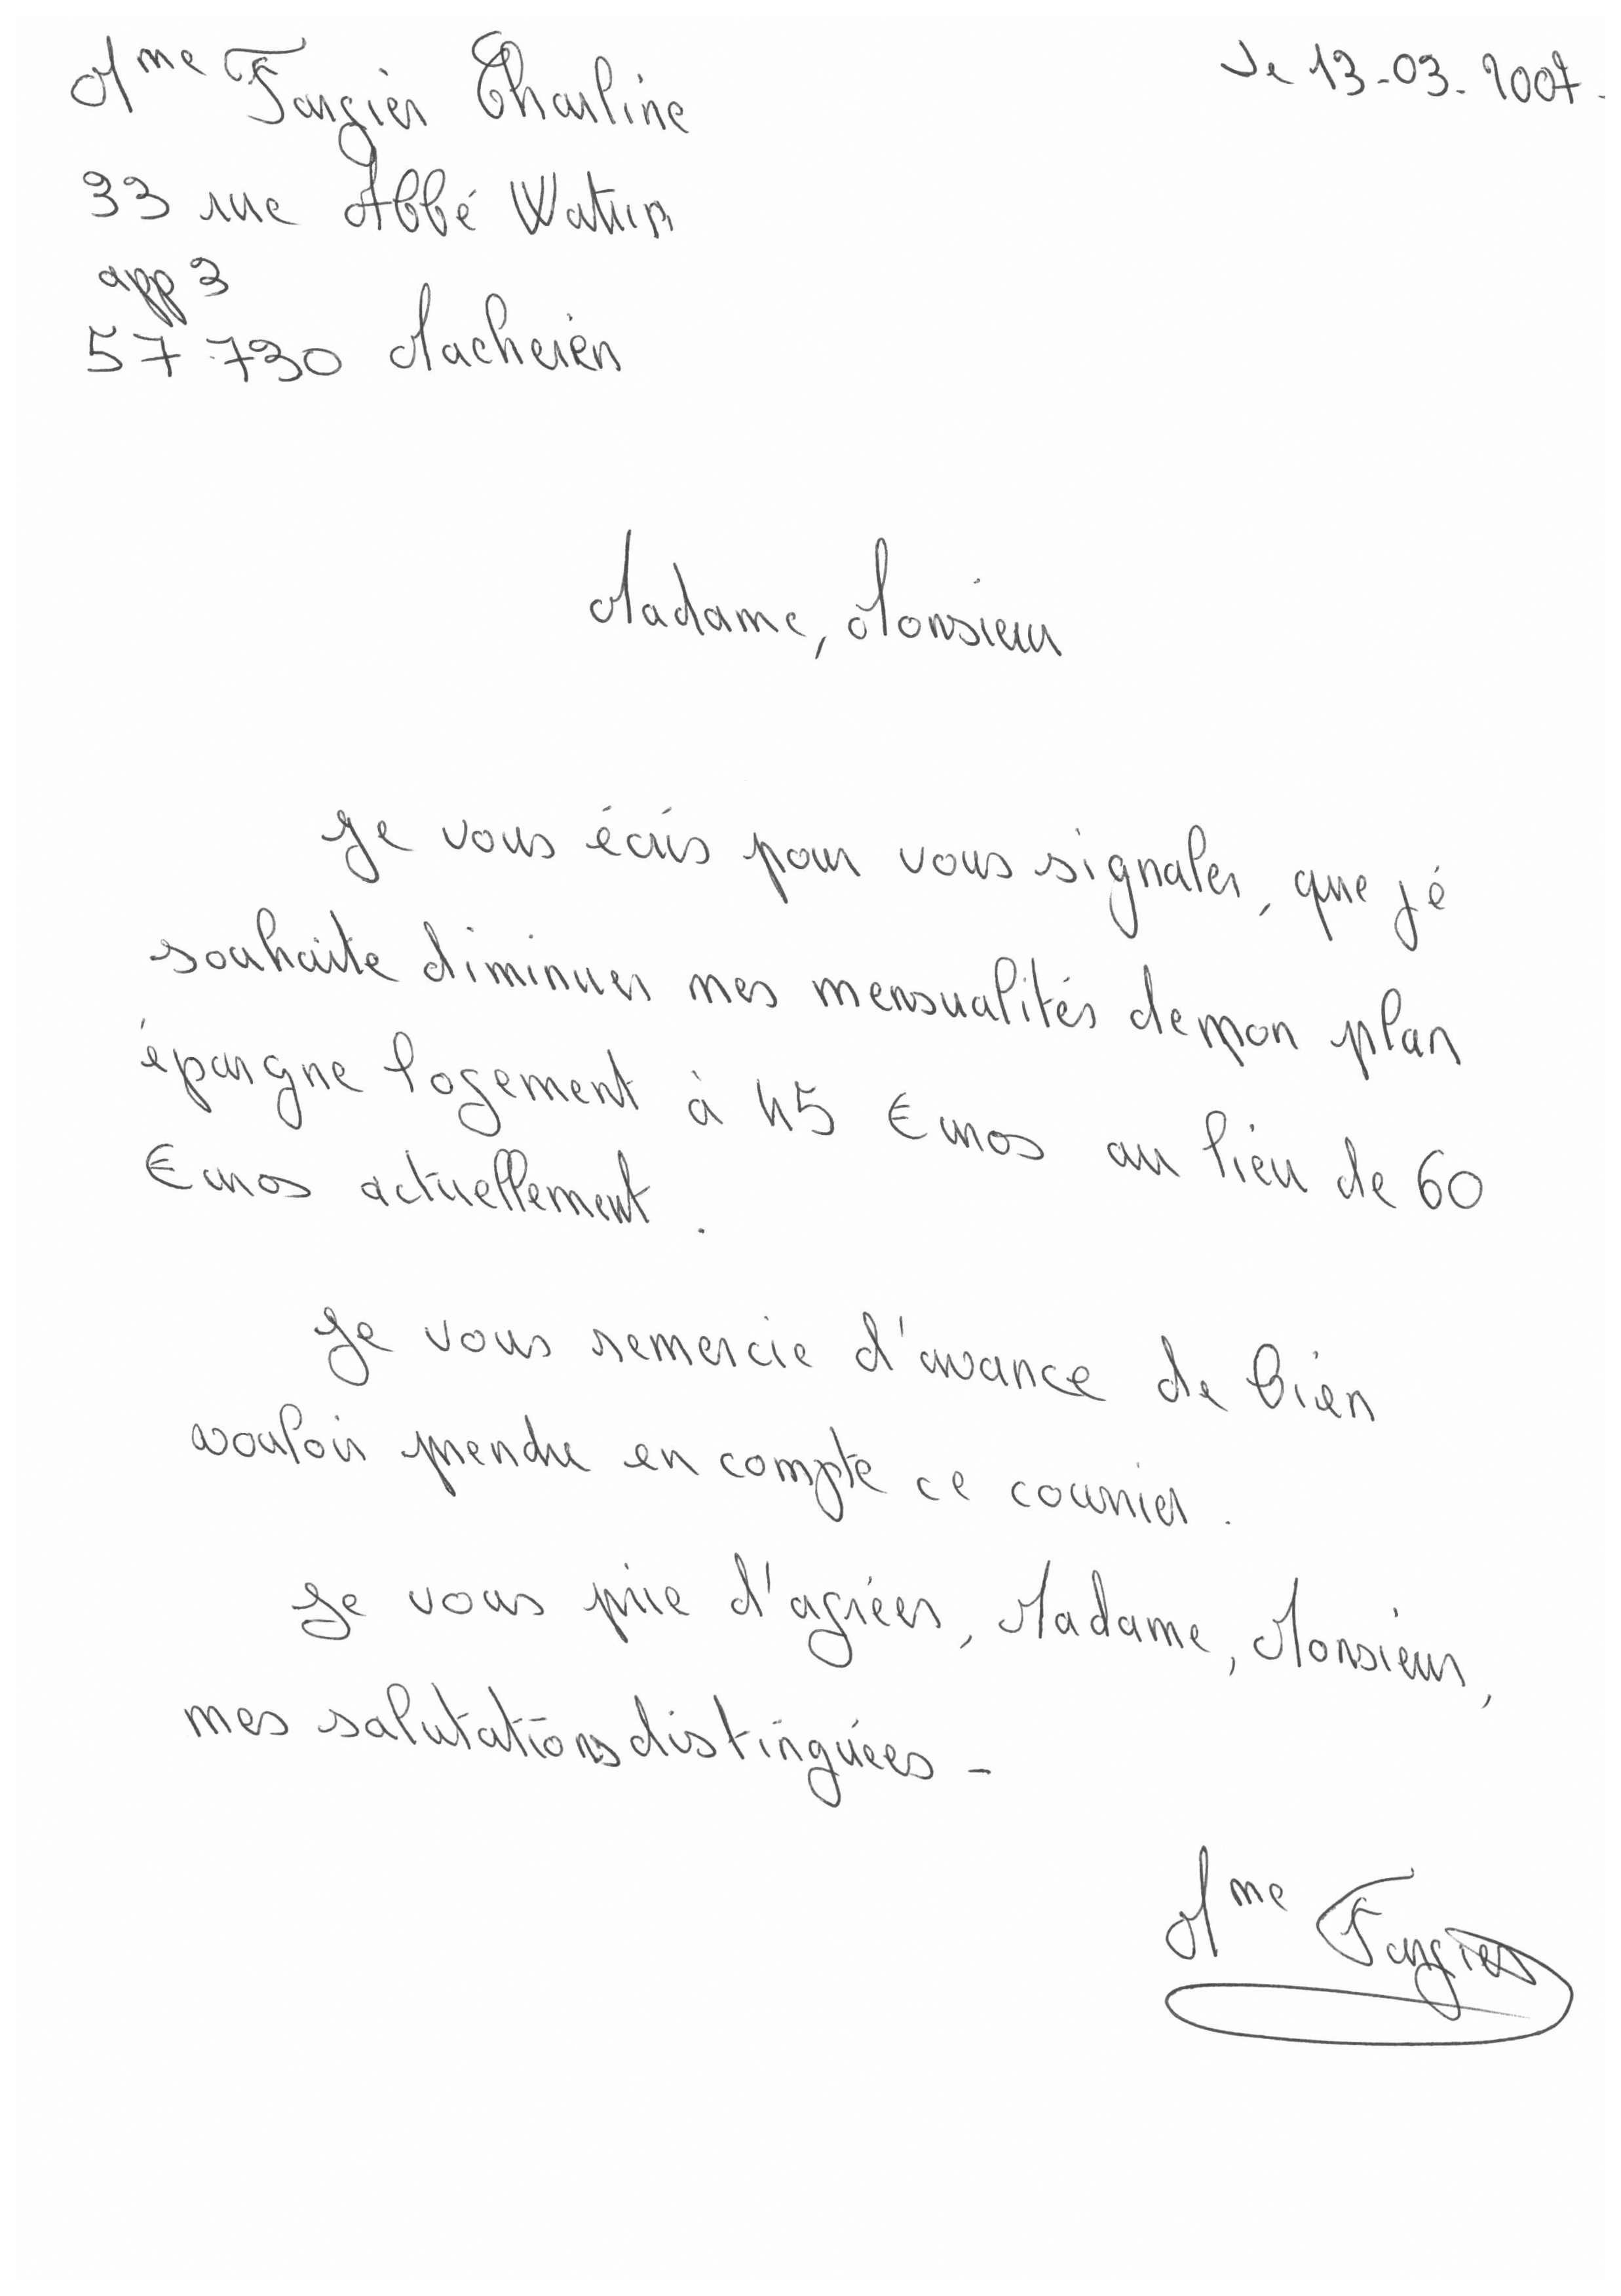 Mme Fargier Charline
Le 13-03-2007.
33 rue Abbé Watrin
app 3
57 730 Macheren
Madame, Monsieur
Je vous écris pour vous signaler, que je
souhaite diminuer mes mensualités de mon plan
épargne logement à 45 €uros au lieu de 60
€uros actuellement.
Je vous remercie d'avance de bien
vouloir prendre en compte ce courrier.
Je vous prie d'agréer, Madame, Monsieur,
mes salutations distinguées -
Mme Fargier